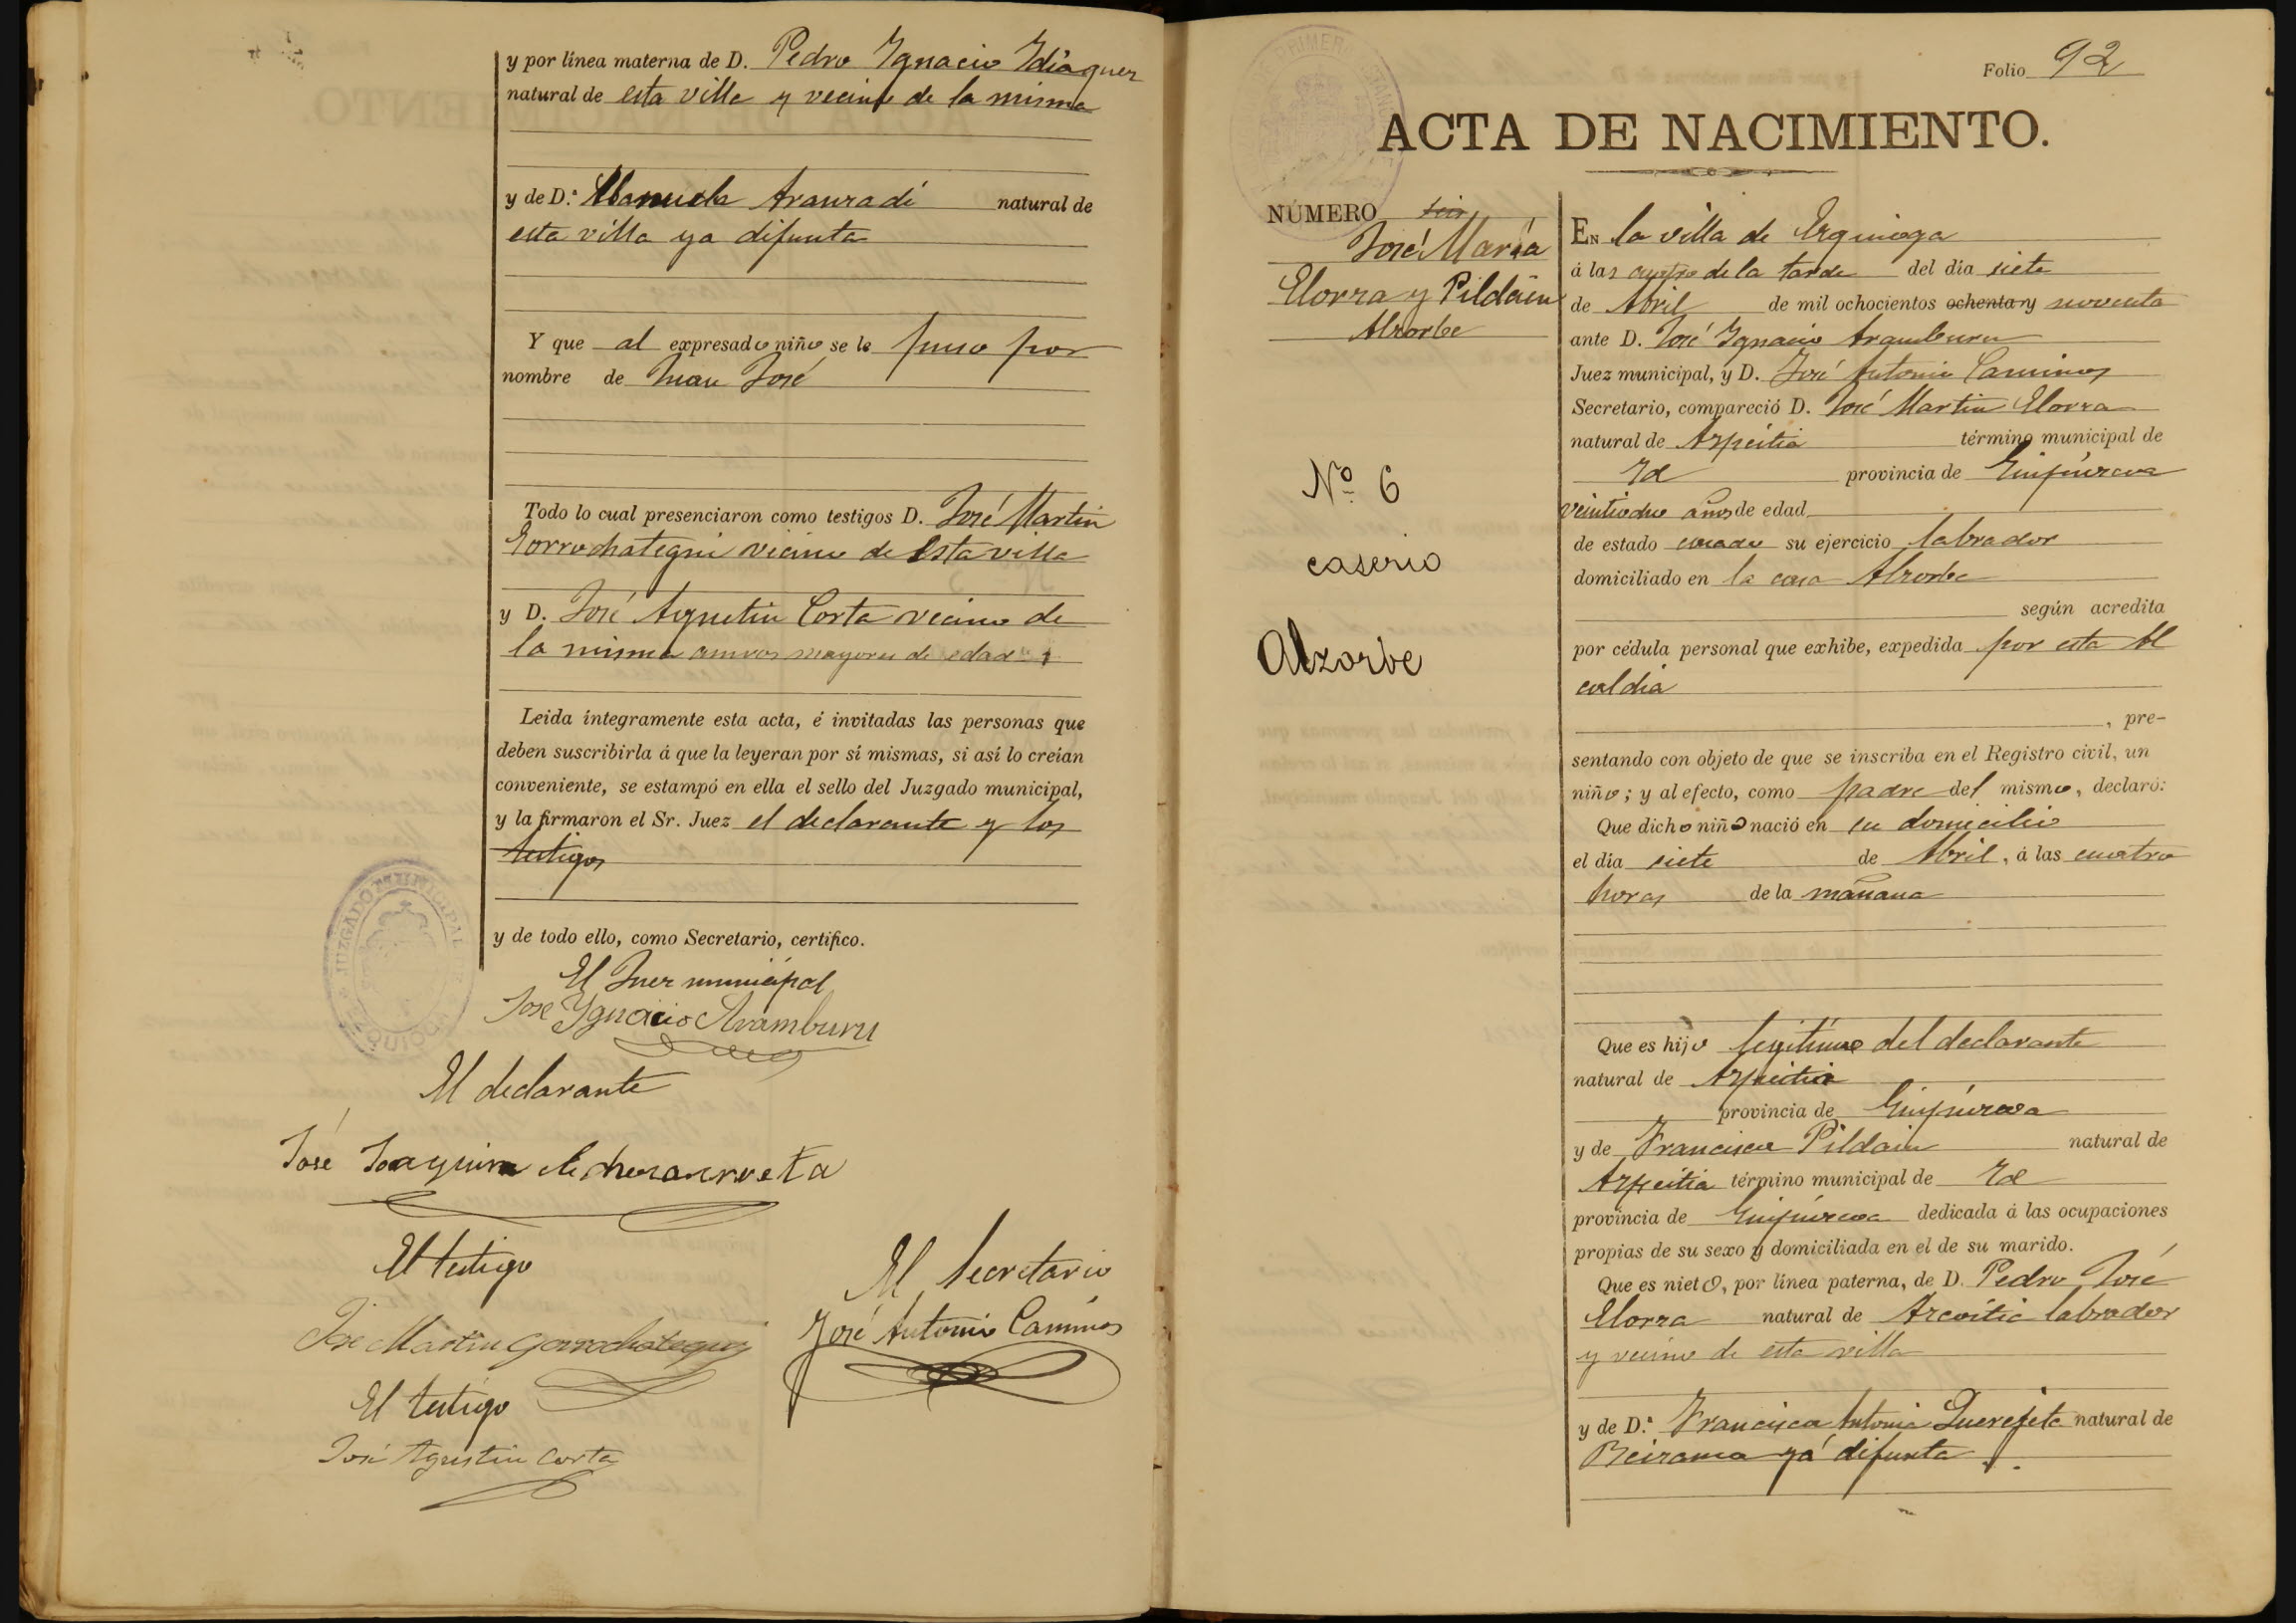 y por línea materna de D. Pedro Ygnacio Ydiaquez
natural de esta villa y vecino de la misma
y de D.ª Manuela Aranzadi natural de
esta villa ya difunta
Y que al expresado niño se le puso por
nombre de Juan José
Todo lo cual presenciaron como testigos D. José Martin
Gorrochategui vecino de esta villa
y D. José Agustin Corta vecino de
la misma amvos mayores de edad
Leida íntegramente esta acta, é invitadas las personas que
deben suscribirla á que la leyeran por sí mismas, si así lo creían
conveniente, se estampó en ella el sello del Juzgado municipal,
y la firmaron el Sr. Juez el declarante y los
testigos
y de todo ello, como Secretario, certifico.
JUZGADO MUNICIPAL
El Juez municipal
Jose Ygnacio Aramburu
El declarante
José Joaquin
El testigo
José Martin Gorrochategui
El testigo
José Agustin Corta
El Secretario
José Antonio Caminos
Folio 92
ACTA DE NACIMIENTO.
NÚMERO seis
José María
Elorza y Pildain
Alzorbe
Nº 6
caserio
Alzorbe
EN la villa de Ezquioga
á las cuatro de la tarde del día siete
de Abril de mil ochocientos ochenta y noventa
ante D. José Ygnacio Aramburu
Juez municipal, y D. José Antonio Caminos
Secretario, compareció D. José Martin Elorza
natural de Azpeitia término municipal de
Yd provincia de Guipúzcoa
años de edad
de estado casado su ejercicio labrador
domiciliado en la casa Alzorbe
según acredita
por cédula personal que exhibe, expedida por esta Al
caldia
, pre-
sentando con objeto de que se inscriba en el Registro civil, un
niño; y al efecto, como padre del mismo, declaró:
Que dicho niño nació en su domicilio
el día siete de Abril, á las cuatro
horas de la mañana
Que es hijo legítimo del declarante
natural de Azpeitia
provincia de Guipúzcoa
y de Francisca Pildain natural de
Azpeitia término municipal de Yd
provincia de Guipúzcoa dedicada á las ocupaciones
propias de su sexo y domiciliada en el de su marido.
Que es nieto, por línea paterna, de D. Pedro José
Elorza natural de Azcoitia labrador
y vecino de esta villa
y de D.ª Francisca Antonia Querejeta natural de
Beizama ya difunta